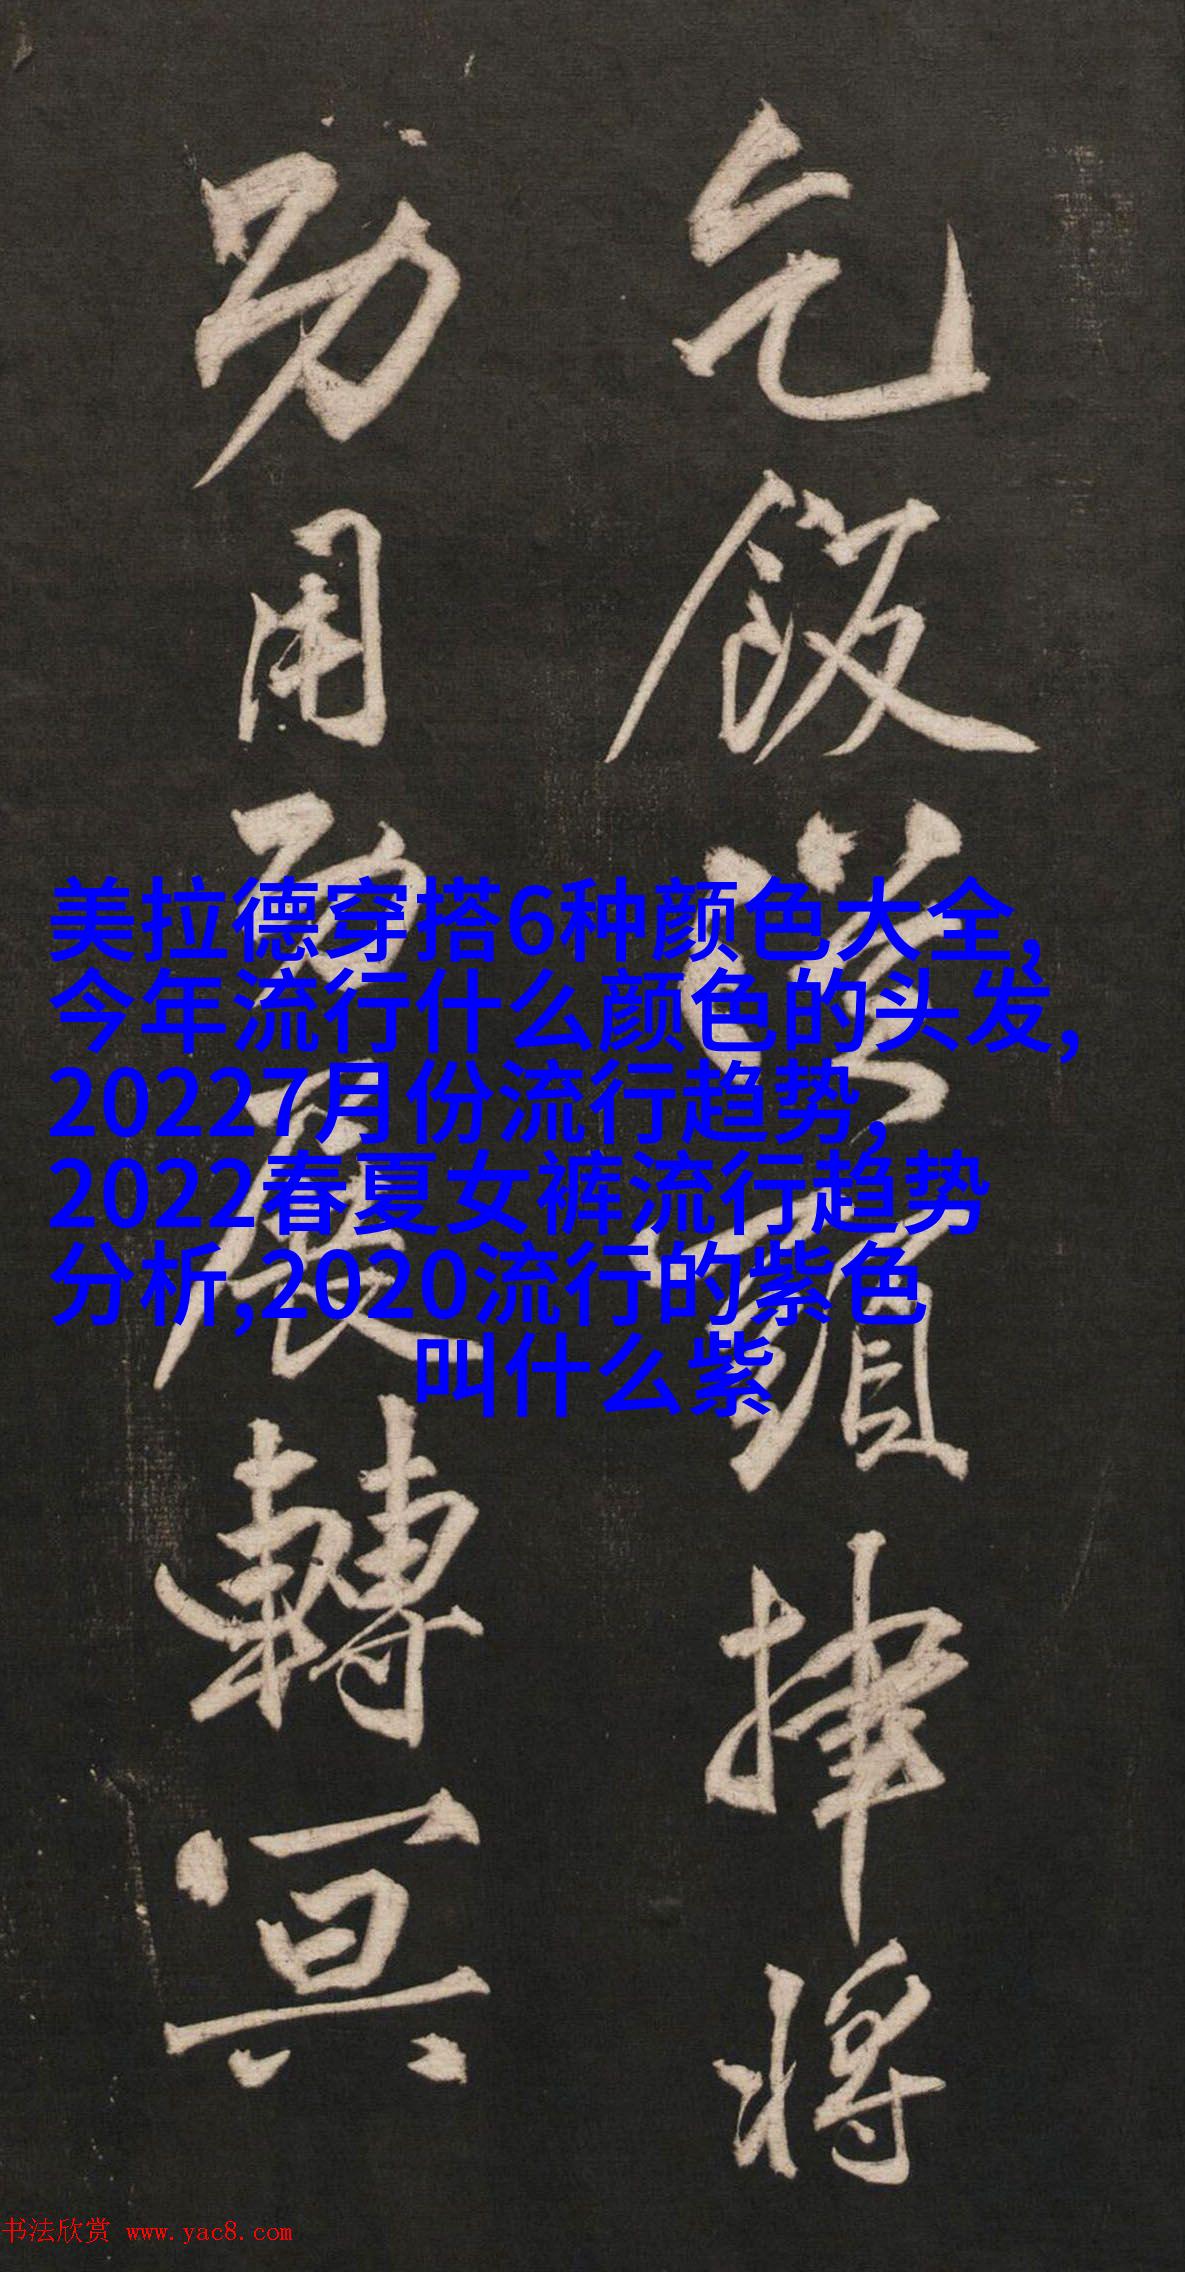 乞飯漢頭捧將
功用
轉冥
美拉德穿搭6种颜色大全,
今年流行什么颜色的头发,
20227月份流行趋势,
2022春夏女裤流行趋势
分析,2020流行的紫色
叫什么紫
书法欣赏 www.yac8.com